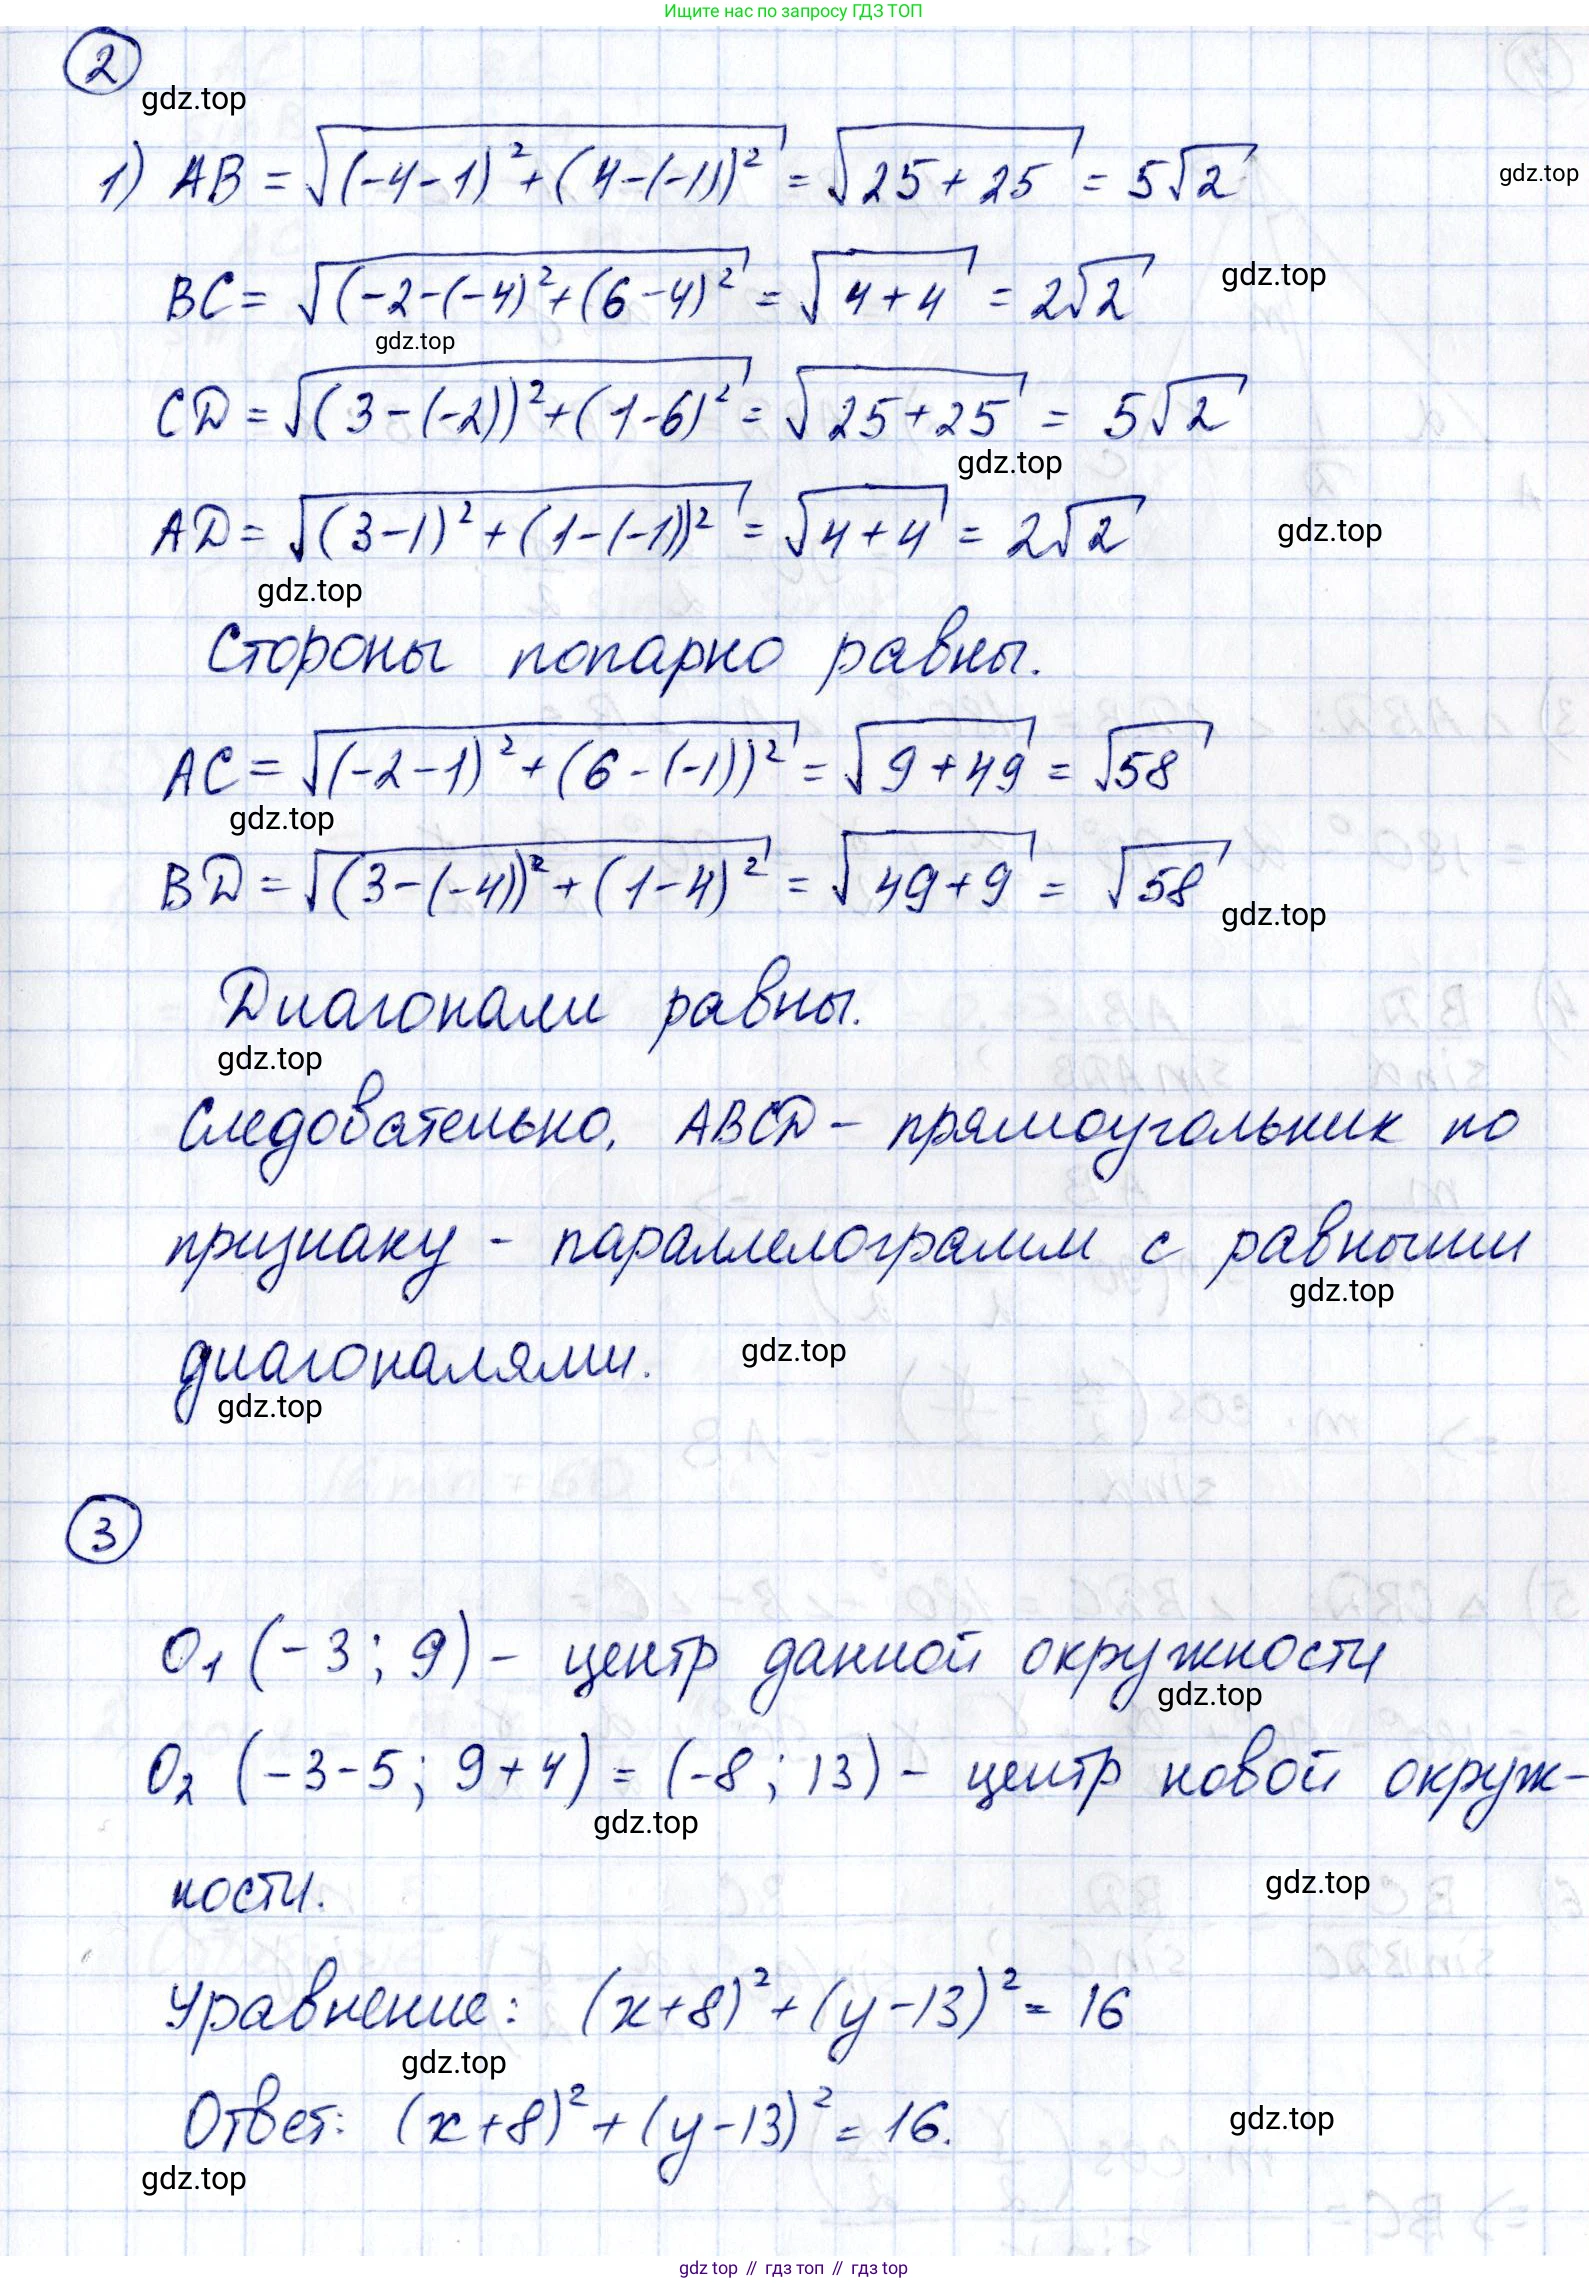 Ищите нас по запросу ГДЗ ТОП
2
gdz.top
1) AB = √((-4-1)² + (4-(-1))²) = √(25+25) = 5√2
gdz.top
BC = √((-2-(-4)² + (6-4)²) = √(4+4) = 2√2
gdz.top
gdz.top
CD = √((3-(-2))² + (1-6)²) = √(25+25) = 5√2
gdz.top
AD = √((3-1)² + (1-(-1))²) = √(4+4) = 2√2
gdz.top
gdz.top
Стороны попарно равны.
AC = √((-2-1)² + (6-(-1))²) = √(9+49) = √58
gdz.top
BD = √((3-(-4))² + (1-4)²) = √(49+9) = √58
gdz.top
Диагонали равны.
gdz.top
Следовательно, ABCD – прямоугольник по
признаку - параллелограмм с равными
gdz.top
диагоналями.
gdz.top
gdz.top
3
O₁ (-3; 9) - центр данной окружности
gdz.top
O₂ (-3-5; 9+4) = (-8; 13) - центр новой окруж-
gdz.top
ности.
gdz.top
Уравнение: (x+8)² + (y-13)² = 16
gdz.top
Ответ: (x+8)² + (y-13)² = 16.
gdz.top
gdz.top
gdz top // гдз топ // гдз top